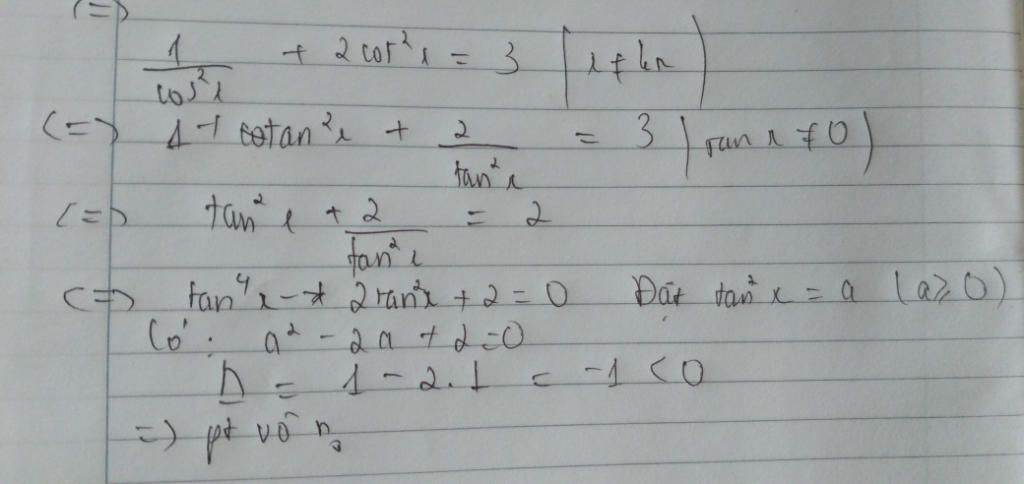 (=)
1/cos²x + 2cot²x = 3 (x ≠ kπ)
(=) 1 + tan²x + 2/tan²x = 3 (tan x ≠ 0)
(=) tan²x + 2/tan²x = 2
(=) tan⁴x - 2tan²x + 2 = 0 Đặt tan²x = a (a ≥ 0)
Có: a² - 2a + 2 = 0
Δ = 1 - 2.1 = -1 < 0
=) pt vô n₀